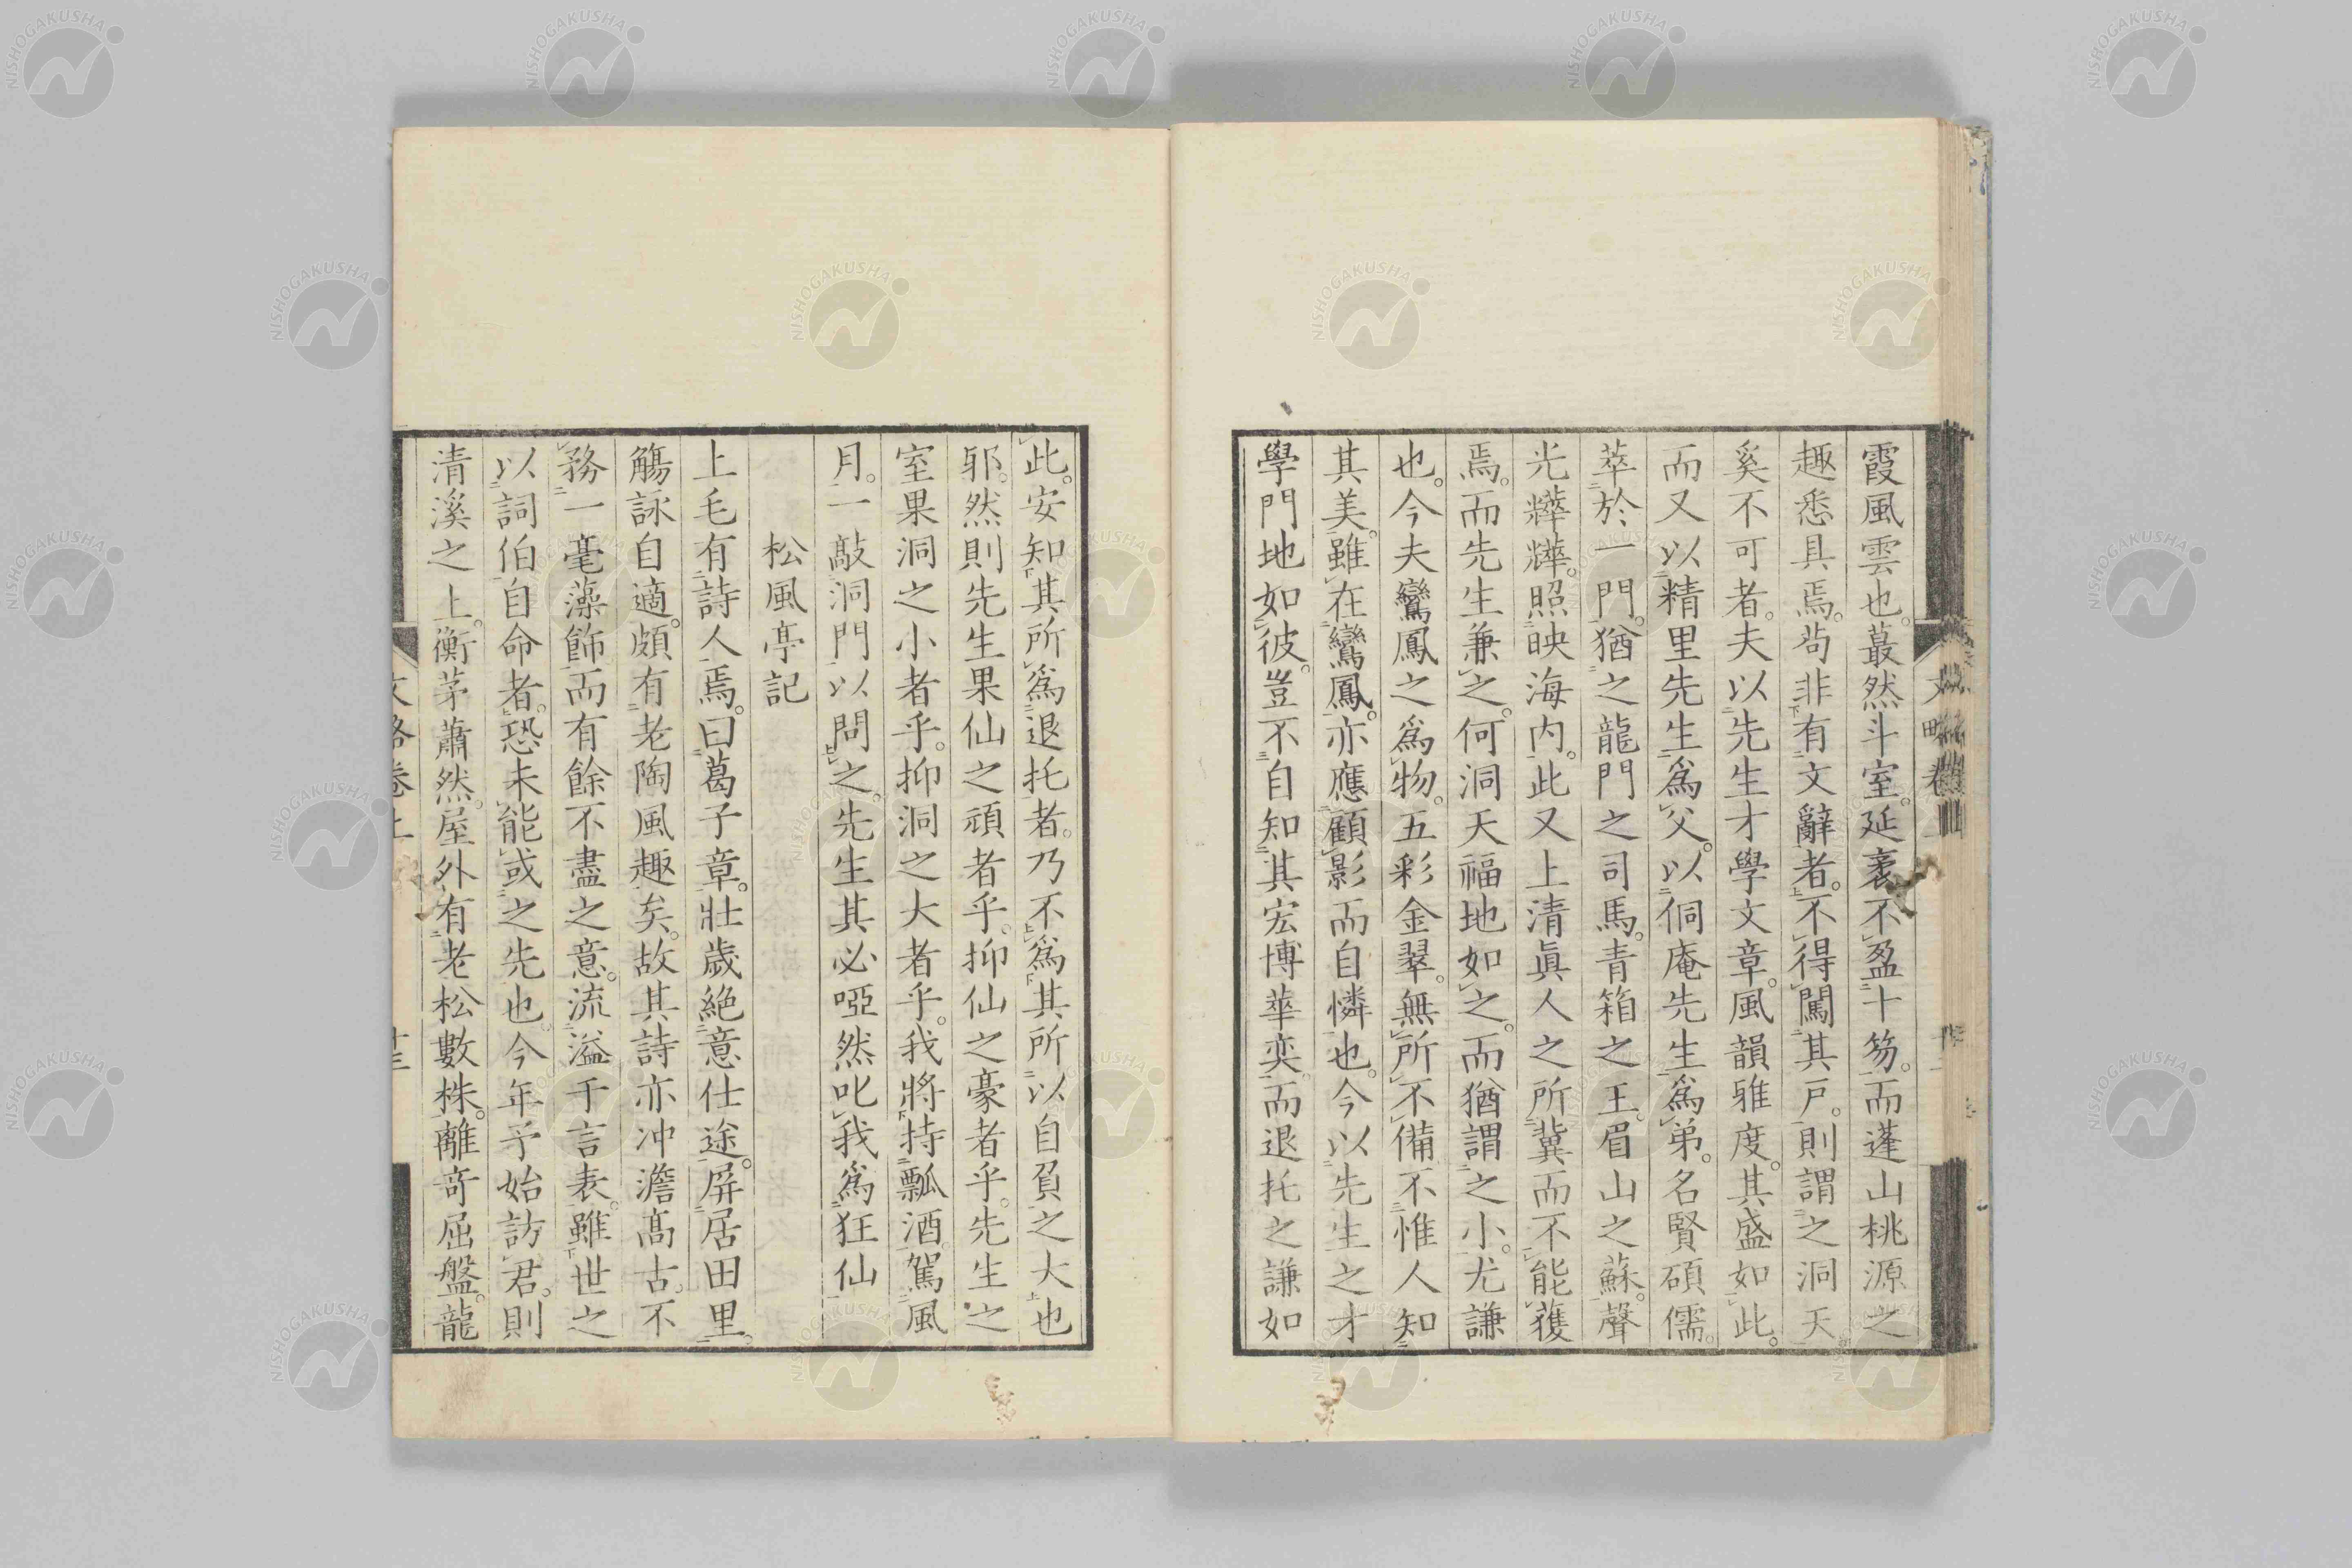 霞風雲也。蕞然斗室。延袤不盈十笏。而蓬山桃源之
趣悉具焉。茍非有文辭者。不得闖其戸。則謂之洞天
奚不可者。夫以先生才學文章。風韻雅度。其盛如此。
而又以精里先生爲父。以侗庵先生爲弟。名賢碩儒。
萃於一門。猶之龍門之司馬。青箱之王。眉山之蘇。聲
光㷸㷸。照映海内。此又上清眞人之所冀而不能獲
焉。而先生兼之。何洞天福地如之。而猶謂之小。尤謙
也。今夫鸞鳳之爲物。五彩金翠。無所不備。不惟人知
其美。雖在鸞鳳。亦應顧影而自憐也。今以先生之才
學門地如彼。豈不自知其宏博華奕。而退托之謙如
此。安知其所爲退托者。乃不爲其所以自負之大也
邪。然則先生果仙之頑者乎。抑仙之豪者乎。先生之
室果洞之小者乎。抑洞之大者乎。我將持瓢酒。駕風
月。一敲洞門以問之。先生其必啞然叱我爲狂仙
松風亭記
上毛有詩人焉。曰葛子章。壯歲絶意仕途。屏居田里。
觴詠自適。頗有老陶風趣矣。故其詩亦冲澹髙古。不
務一毫藻飾。而有餘不盡之意。流溢于言表。雖世之
以詞伯自命者。恐未能或之先也。今年予始訪君。則
清溪之上。衡茅蕭然。屋外有老松數株。離奇屈盤。龍
文略卷上
十三